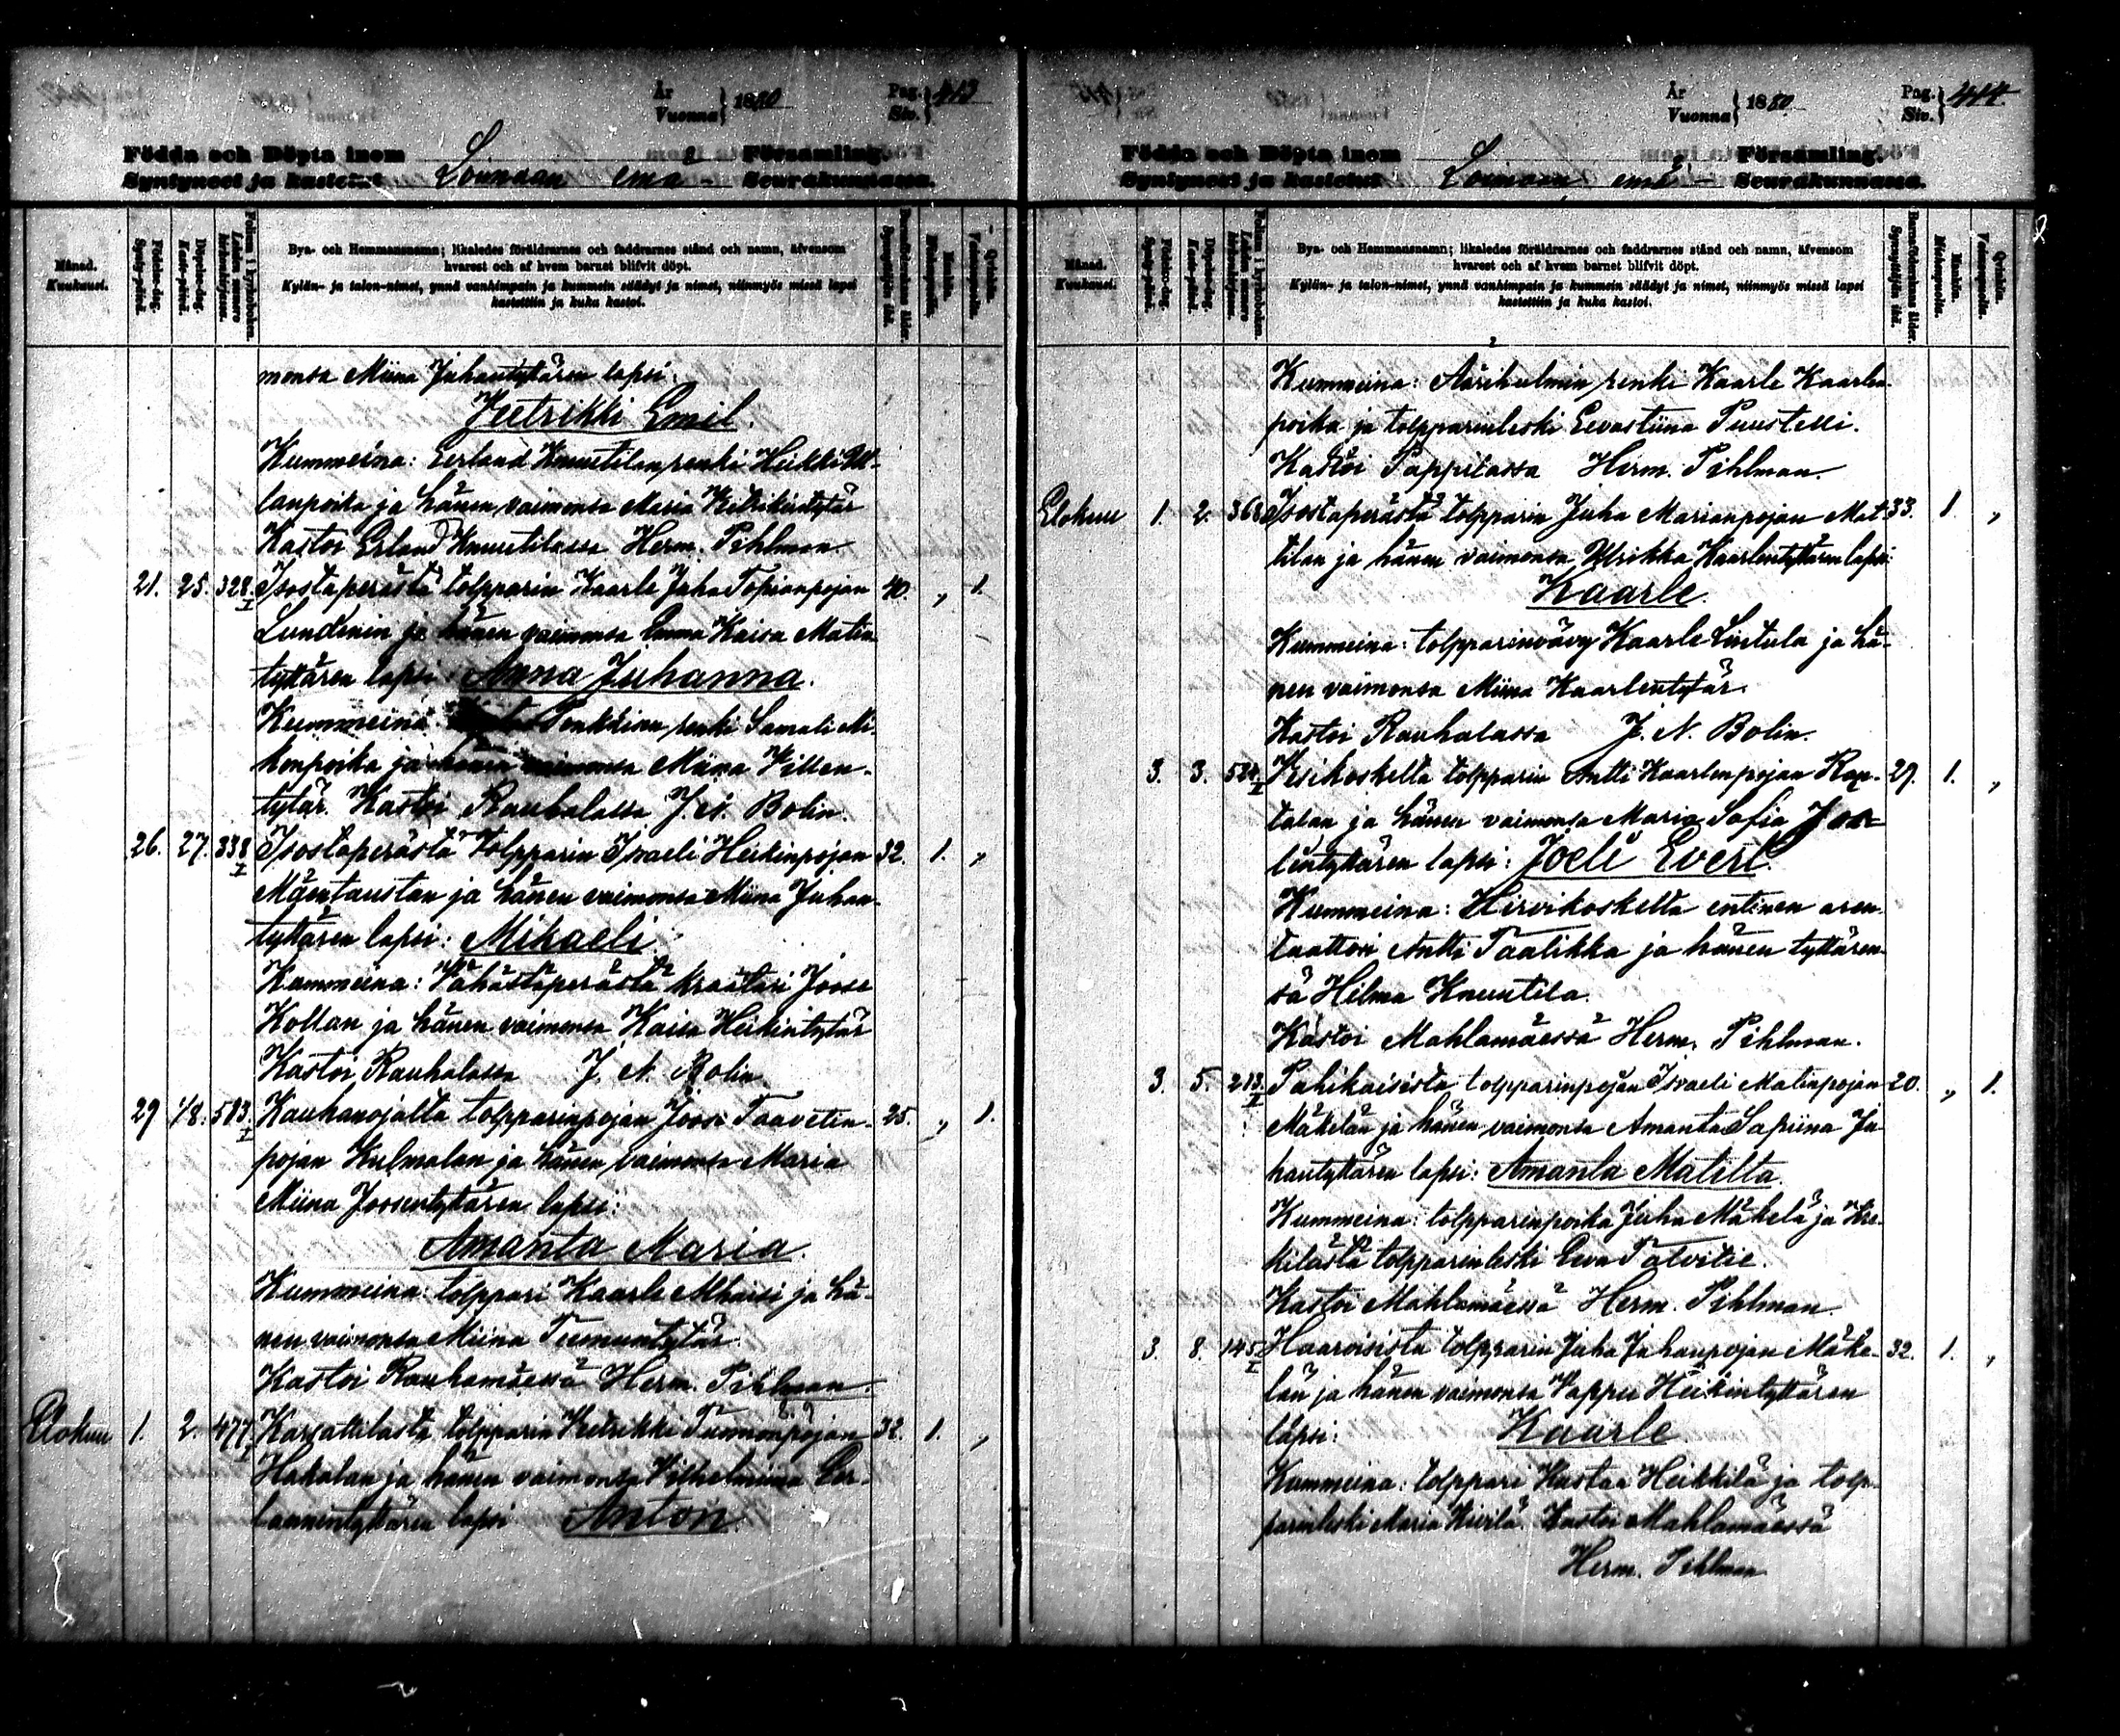 År Vuonna } 1880 Pag. Siv. } 413
Födda och Döpta inom Församling.
Syntyneet ja kastetut Loimaan emä- Seurakunnassa.
Månad. Kuukausi.
Födelse-dag. Synty-päivä.
Döpelse-dag. Kaste-päivä.
Folium i kyrkoboken. Lehden numero kirkonkirjassa.
Bya- och Hemmansnamn; likaledes föräldrarnes och faddrarnes stånd och namn, äfvensom
hvarest och af hvem barnet blifvit döpt.
Kylän- ja talon-nimet, ynnä vanhimpain ja kummein säädyt ja nimet, niinmyös missä lapsi
kastettiin ja kuka kastoi.
Barnaföderskans ålder. Synnyttäjän ikä.
Mankön. Miehenpuolia.
Qvinkön. Vaimonpuolia.
monsa Miina Juhantyttären lapsi:
Veetrikki Emil.
Kummeina: Eerland Knuutilan renki Heikki
lanpoika ja hänen vaimonsa Maria Heikintytär
Kastoi Erland Knuutilassa Herm. Pihlman
21. 25. 328. I Isostaperästä tolpparin Kaarle Juha Topianpojan 40. „ 1.
Lundenin ja hänen vaimonsa Emma Kaisa Matin
tyttären lapsi: Anna Juhanna.
Kummeina: Penkäinen renki Samuli Mi-
konpoika ja hänen vaimonsa Miina Villen-
tytär. Kastoi Rauhalassa J. N. Bolin.
26. 27. 338 I Isostaperästä tolpparin Israeli Heikinpojan 32. 1. „
Mäentaustan ja hänen vaimonsa Miina Juhan-
tyttären lapsi: Mikaeli.
Kummeina: Vähästäperästä kraatari Joose
Kollan ja hänen vaimonsa Kaisa Heikintytär
Kastoi Rauhalassa J. N. Bolin
29 1/8. 583. I Kauhanojalta tolpparinpojan Joose Taavetin- 25. „ 1.
pojan Kulmalan ja hänen vaimonsa Maria
Miina Joosentyttären lapsi:
Amanta Maria.
Kummeina: tolppari Kaarle Alhaisi ja hä-
nen vaimonsa Miina Teemuntytär.
Kastoi Rauhamäessä Herm. Pihlman.
Elokuu 1. 2. 477 I Karsattilasta tolpparin Veetrikki Tuomonpojan 32. 1. „
Hakalan ja hänen vaimonsa Vilhelmiina Eer-
lannintyttären lapsi Anton.
År Vuonna } 1880 Pag. Siv. } 414.
Födda och Döpta inom Församling.
Syntyneet ja kastetut Loimaan emä- Seurakunnassa.
Månad. Kuukausi.
Födelse-dag. Synty-päivä.
Döpelse-dag. Kaste-päivä.
Folium i kyrkoboken. Lehden numero kirkonkirjassa.
Bya- och Hemmansnamn; likaledes föräldrarnes och faddrarnes stånd och namn, äfvensom
hvarest och af hvem barnet blifvit döpt.
Kylän- ja talon-nimet, ynnä vanhimpain ja kummein säädyt ja nimet, niinmyös missä lapsi
kastettiin ja kuka kastoi.
Barnaföderskans ålder. Synnyttäjän ikä.
Mankön. Miehenpuolia.
Qvinkön. Vaimonpuolia.
Kummeina: renki Kaarle Kaarlen-
poika ja tolpparinleski Eevastiina Puustelli.
Kastoi Pappilassa Herm. Pihlman.
Elokuu 1. 2. 368 Isostaperästä tolpparin Juha Marianpojan Mat- 33. 1. „
tilan ja hänen vaimonsa Ulrikka Kaarlentyttären lapsi:
Kaarle.
Kummeina: tolpparinvävy Kaarle Lintula ja hä-
nen vaimonsa Miina Kaarlentytär.
Kastoi Rauhalassa J. N. Bolin.
3. 3. 524 I Vesikoskelta tolpparin Antti Kaarlenpojan Rap- 29. 1. „
talan ja hänen vaimonsa Maria Sofia Joe-
lintyttären lapsi: Joeli Evert.
Kummeina: Hirvikoskelta entinen aren-
taattori Antti Taalikka ja hänen tyttären-
sä Hilma Knuutila.
Kastoi Mahlamäessä Herm. Pihlman.
3. 5. 213. II Puhikaisista tolpparinpojan Israeli Matinpojan 20. „ 1.
Mäkelän ja hänen vaimonsa Amanta Sapiina Ju-
hantyttären lapsi: Amanta Matilta.
Kummeina: tolpparinpoika Juha Mäkelä ja
kilästä tolpparinleski Eeva Talvitie.
Kastoi Mahlamäessä Herm. Pihlman.
3. 8. 145 I Haaroisista tolpparin Juha Juhanpojan Mäke- 32. 1. „
län ja hänen vaimonsa Vappu Heikintyttären
lapsi: Kaarle.
Kummeina: tolppari Kustaa Heikkilä ja tolp-
parinleski Maria Kivilä. Kastoi Mahlamäessä
Herm. Pihlman